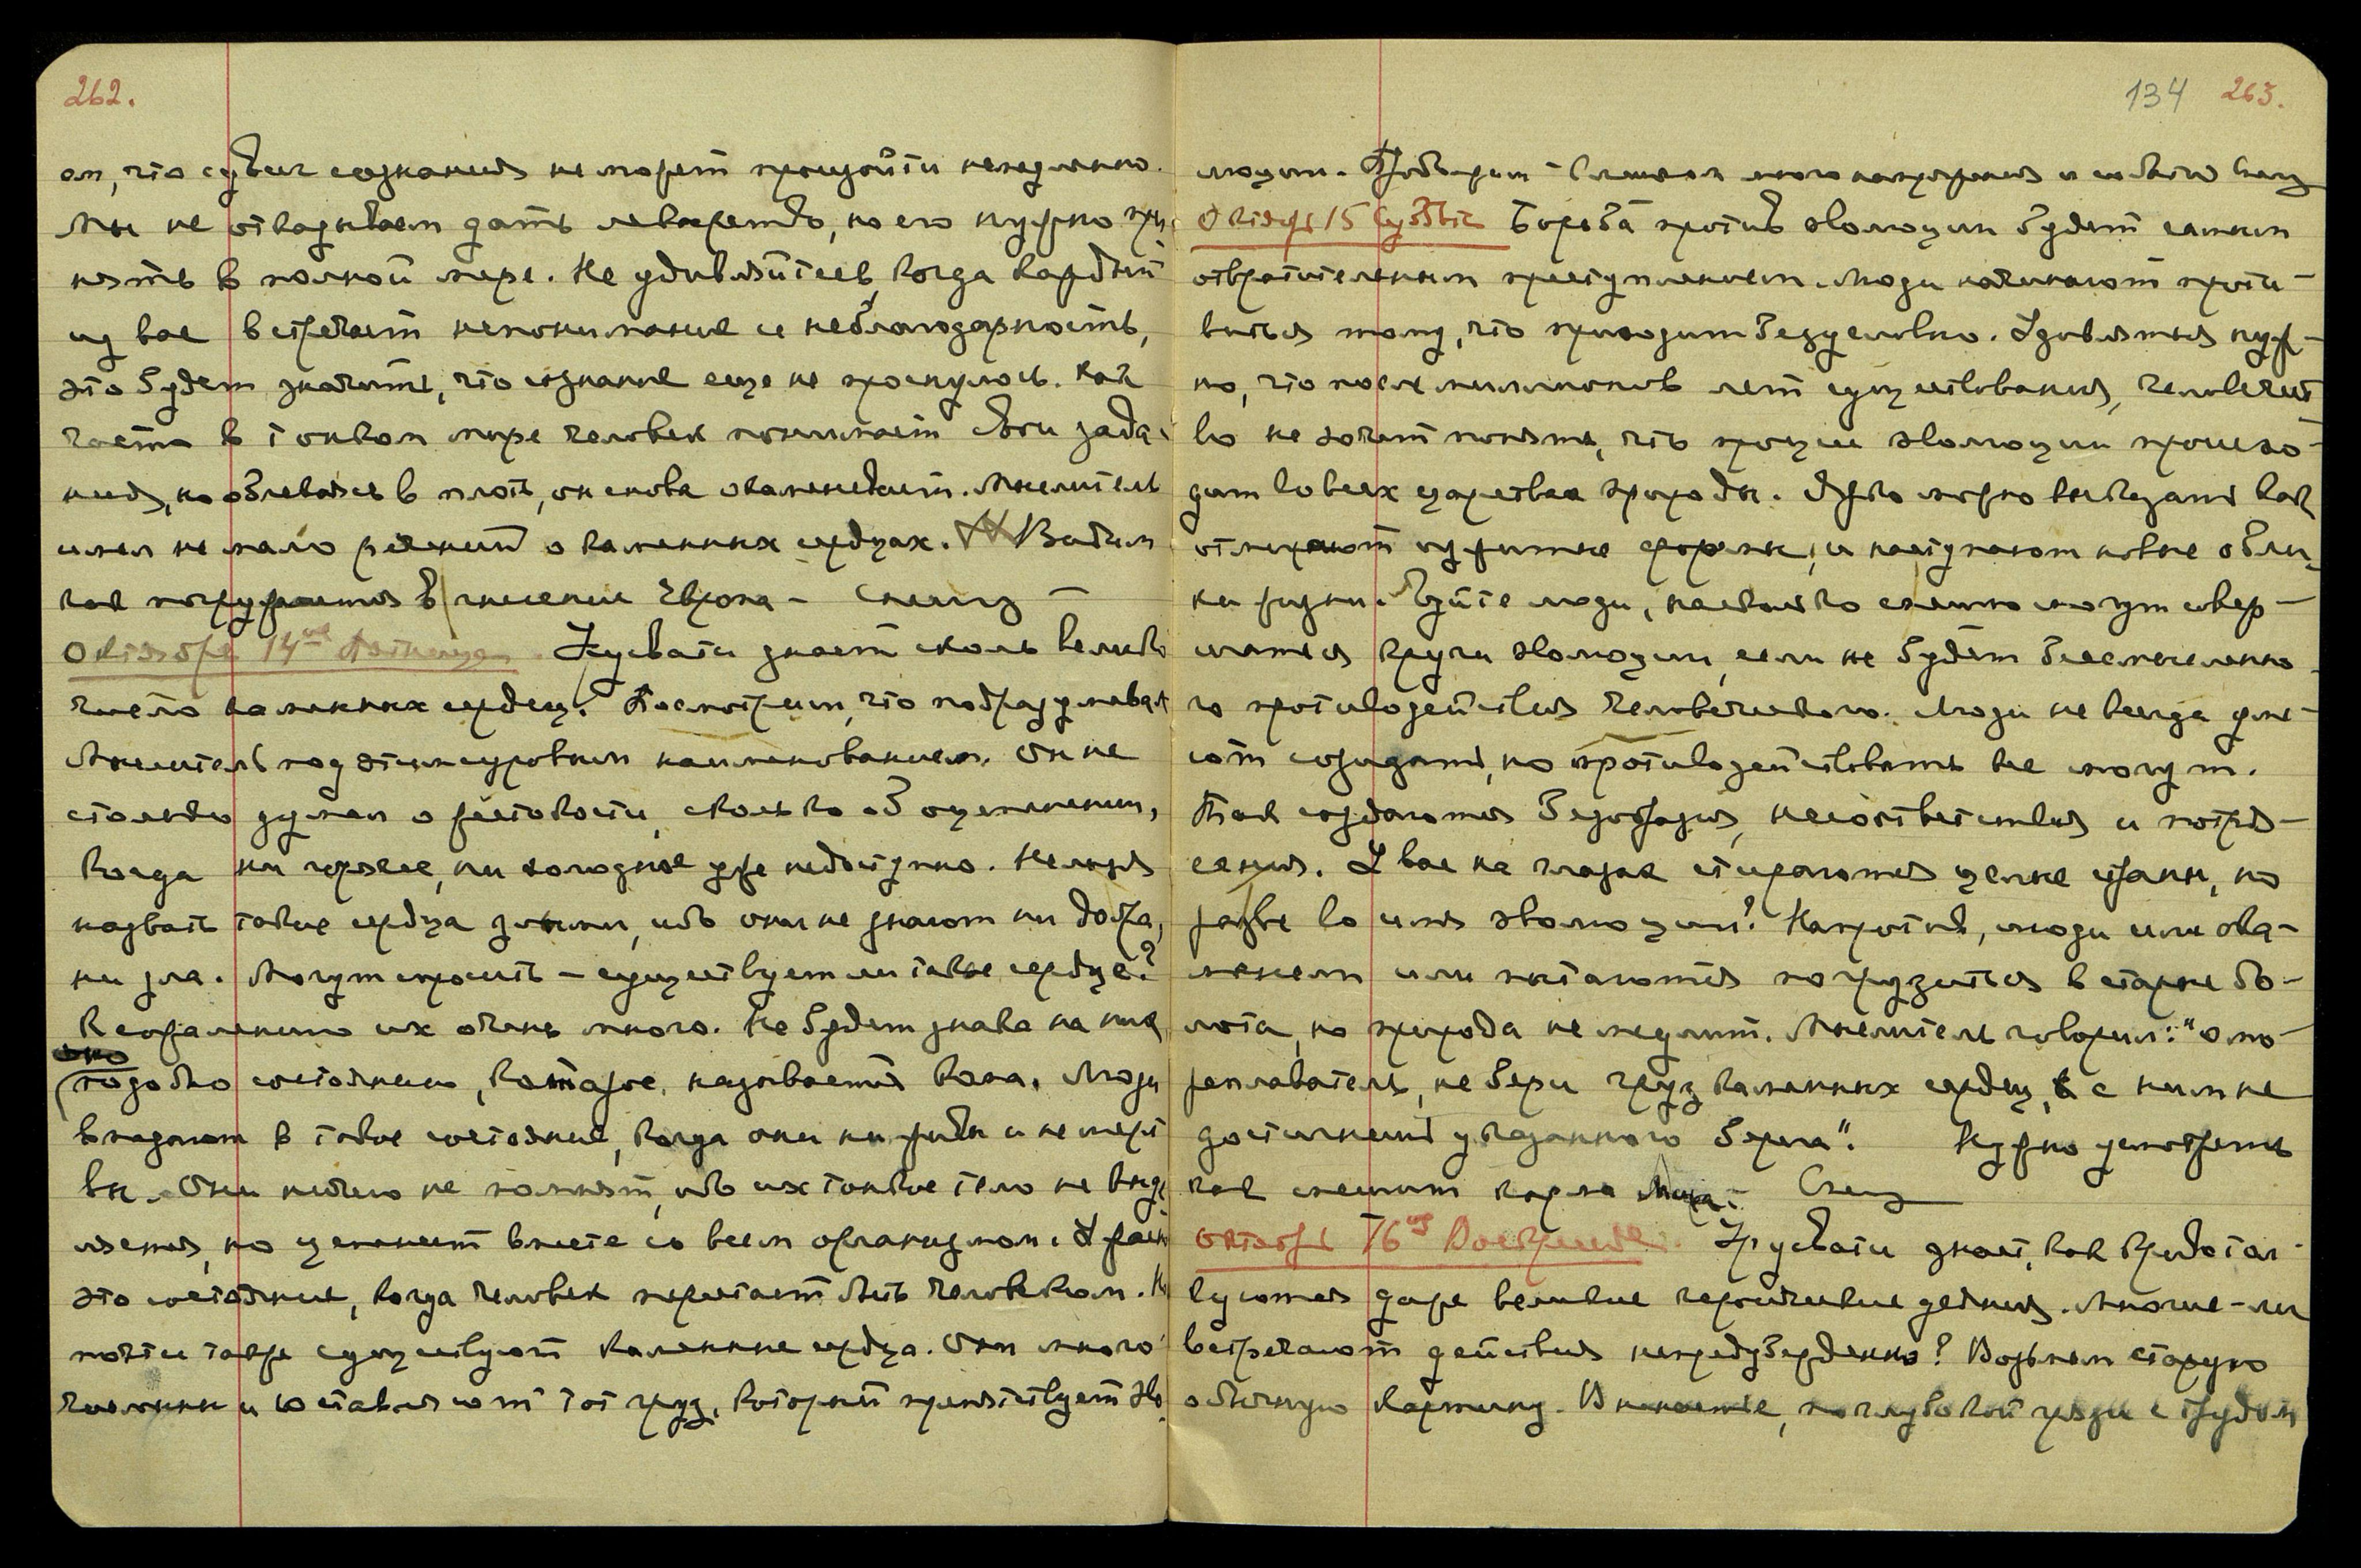 262.
ем, что сдвиг сознания не может произойти немедленно.
Мы не отказываем дать лекарство, но его нужно при-
нять в полной мере. Не удивляйтесь, когда каждый
из вас встречает непонимание и неблагодарность,
это будет значить, что сознание еще не проснулось. Как
часто в Тонком мире человек понимает свои зада-
ния, но облекаясь в плоть, он снова окаменевает. Мыслитель
имел не мало речений о каменных сердцах. Видим
как погружается в Европа – Спешу –
Октября 14ое Пятница. Урусвати знает сколь велико
число каменных сердец. Посмотрим, что подразумевал
Мыслитель под этим суровым наименованием. Он не
столько думал о жестокости, сколько об оцепенении,
когда ни горячее, ни холодное уже недоступно. Нельзя
назвать такие сердца злыми, ибо они не знают ни добра,
ни зла. Могут спросить – существует ли такое сердце?
К сожалению их очень много. Не будет знака на них
оно
подобно состоянию, которое называется кома. Люди
впадают в такое состояние, когда они ни живы и не мерт-
вы. Они ничего не помнят, ибо их тонкое тело не выде-
ляется, но цепенеет вместе со всем организмом. Ужасно
это состояние, когда человек перестает быть человеком. Но
почти также существуют каменные сердца. Они много-
численны и составляют тот груз, который препятствует эво-
134 263.
люции. – Слишком много напряжения и событий Спешу
Октябрь 15 Суббота Борьба против эволюции будет самым
отвратительным преступлением. Люди начинают проти-
виться тому, что приходит безусловно. Удивляться нуж-
но, что после миллионов лет существования, человечест-
во не хочет понять, что процесс эволюции происхо-
дит во всех царствах природы. Ярко можно высказать как
отмирают изжитые формы, и наступают новые обли-
ки жизни. Учуйте люди, насколько спешно могут совер-
шаться круги эволюции, если не будет бессмысленно-
го противодействия человеческого. Люди не всегда уме-
ют созидать, но противодействовать все могут.
Так создаются безобразия, несоответствия и потря-
сения. У вас на глазах стираются целые страны, но
разве во имя эволюции? Напротив, люди или ока-
менели или пытаются погрузиться в старые бо-
лота, но природа не медлит. Мыслитель говорил: "О мо-
реплаватель, не бери груз каменных сердец, с ним не
достигнешь указанного берега". Нужно усмотреть
как спешит карма Мира. – Спешу
Октябрь 16ое Воскресенье. Урусвати знает, как кривотол-
куются даже великие героические деяния. Многие-ли
встречают действия непредубежденно? Возьмем старую
обычную картину. В ненастье, по глубокой грязи с трудом